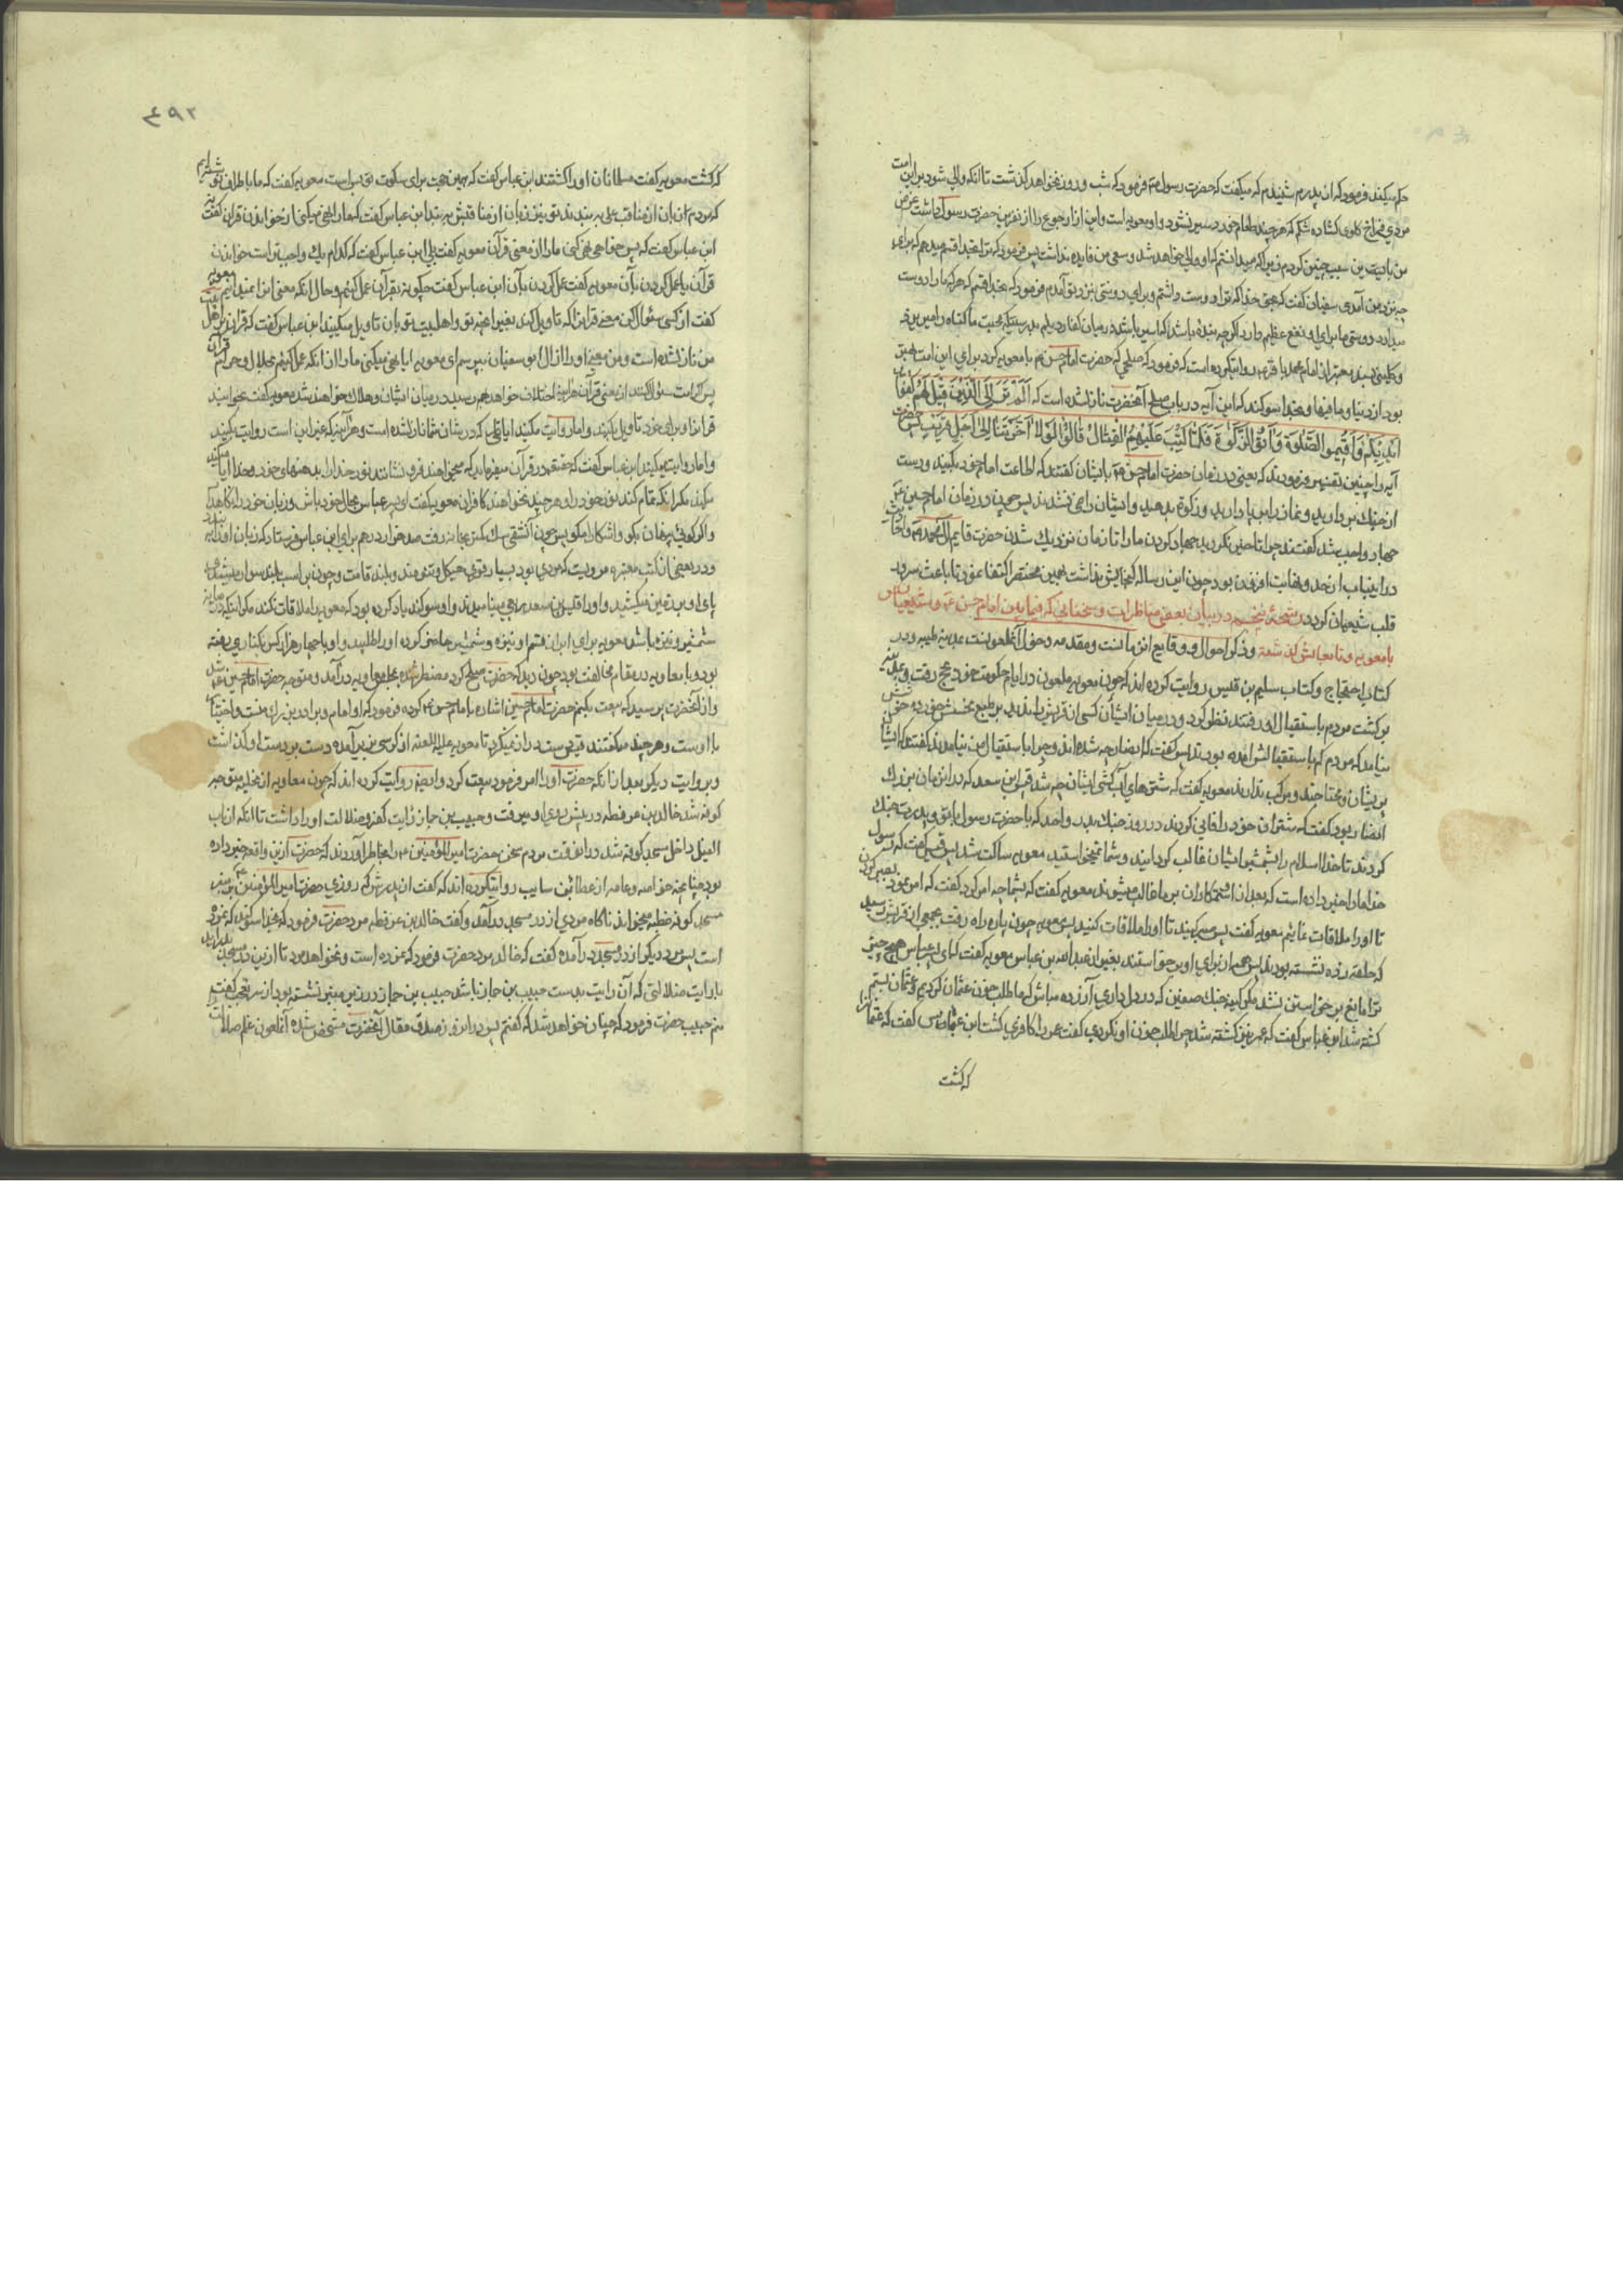 حکم میکند فرمود که از پدرم شنیدم که میگفت که حضرت رسول ص فرمود که شب و روز نخواهد گذشت تا آنکه والی شود بر این امت
مردی فراخ گلوی گشاده شکم که هر چند طعام خورد سیر نشود و او معویه است
من باین سبب چنین کردم زیرا که میدانستم که او والی خواهد شد و سعی من فایده نداشت پس فرمود که ترا بخدا قسم میدهم که برای
چه نزد من آمدی سفیان گفت که بحق خدا که ترا دوست داشتم و برای دوستی نزد تو آمدم فرمود که بخدا قسم که هر که ما را دوست
میدارد دوستی ما برای او نفع عظیم دارد اگر چه بنده باشد که اسیر باشد در میان کفار دیلم بدرستیکه محبت ما گناه را میریزد
و کلینی بسند معتبر از امام محمد باقر ع روایتکرده است که فرمود که صلحی که حضرت امام حسن ع با معویه کرد برای این امت بهتر
بود از دنیا و مافیها و بخدا سوگند که این آیه در باب صلح آنحضرت نازلشده است که اَلَمْ تَرَ اِلَی الَّذِینَ قِیلَ لَهُمْ کُفُّوا
اَیْدِیَکُمْ وَاَقِیمُوا الصَّلٰوةَ وَآتُوا الزَّکٰوةَ فَلَمَّا کُتِبَ عَلَیْهِمُ الْقِتَالُ قَالُوا لَوْلَا اَخَّرْتَنَا اِلٰی اَجَلٍ قَرِیبٍ پس حضرت
آیه را چنین تفسیر فرمودند که یعنی در زمان حضرت امام حسن ع بایشان گفتند که اطاعت امام خود بکنید و دست
از جنگ بردارید و نماز را برپا دارید و زکوة بدهید و ایشان راضی نشدند پس چون در زمان امام حسین ع
جهاد واجب شد گفتند چرا تاخیر نکردید جهاد کردن ما را تا زمان نزدیک شدن حضرت قایم آل محمد ص
در اینباب از حد و نهایت افزون بود چون این رساله گنجایش نداشت بهمین مختصر اکتفا نمود تا باعث سرور
قلب شیعیان گردد رشحهٔ پنجم در بیان بعضی مناظرات و سخنانی که فیما بین امام حسن ع و شیعیان او
با معویه و تابعانش گذشته و ذکر احوال و وقایع انزمانست و مقدمه دخول آنملعونست بمدینه طیبه و در
کتاب احتجاج و کتاب سلیم بن قلیس روایت کرده اند که چون معویه ملعون در ایام حکومت خود بحج رفت
برگشت مردم باستقبال او رفتند نظر کرد و در میان ایشان کسی از قریش را ندید
نیامد که مردم که باستقبالش آمده بودند پس گفت که انصار چه شده اند و چرا باستقبال من نیامدند گفتند که ایشان
پریشان و محتاجند و مرکب ندارند معویه گفت که شترهای آبکشی ایشان چه شد قیس ابن سعد که در انزمان بزرگ
انصار بود گفت که شتران خود را فانی کردند در روز جنگ بدر و احد که با حضرت رسول با تو و پدرت جنک
کردند تا خدا اسلام را بشمشیر ایشان غالب گردانید و شما نمیخواستید معویه ساکت شد پس قیس گفت که رسول
خدا ما را خبر داده است که بعد از او ستمکاران بر ما غالب میشوند معویه گفت که بشما چه امر کرد گفت که امر نمود بصبر کردن
تا او را ملاقات نمائیم معویه گفت پس صبر کنید تا او را ملاقات کنید پس معویه چون پاره راه رفت بجمعی از قریش رسید
که حلقه زده نشسته بودند پس همه از برای او برخواستند بغیر از عبدالله بن عباس معویه گفت که ای پسر عباس هیچ چیز
ترا مانع برخواستن نشد مگر کینه جنک صفین که در دل داری آزرده مباش که ما طلب خون عثمان کردیم و عثمان بستم
کشته شد ابن عباس گفت که عمر نیز کشته شد چرا طلب خون او نکردی گفت عمر را کافری کشت ابن عباس گفت که عثمانرا
که کشت
۴۹۲
که کشت معویه گفت مسلمانان او را کشتند ابن عباس گفت که همین حجت برای سکوت تو بس است معویه گفت که ما باطراف نوشته ایم
که مردم زبان از مناقب علی ببندند تو نیز زبان از مناقبش ببند ابن عباس گفت که ما را نهی میکنی از خواندن قرآن گفت نه
ابن عباس گفت که پس ما را از معنی قرآن معویه گفت بلی ابن عباس گفت که کدام یک واجبتر است خواندن
قرآن یا عمل کردن بآن معویه گفت عمل کردن بآن ابن عباس گفت چگونه بقرآن عمل کنیم و حال آنکه معنی انرا ندانیم معویه
گفت از کسی سئوال کن معنی قرانرا که تاویل کند بغیر آنچه تو و اهلبیت تو بآن تاویل میکنید ابن عباس گفت که قرآن بر اهل
من نازلشده است و من معنی او را از آل ابو سفیان بپرسم ای معویه آیا نهی میکنی ما را از آنکه عمل کنیم بحلال و حرام قرآن
پس اگر امت سئوال نکنند از معنی قرآن هرآینه اختلاف خواهد بهم رسید در میان ایشان و هلاک خواهند شد معویه گفت بخوانید
قرآنرا و برای خود تاویل بکنید و اما روایت مکنید ایاتی را که در شان شما نازلشده است و هر آنچه که غیر این است روایت بکنید
ابن عباس گفت که حقتعالی در قرآن میفرماید که میخواهند فرو نشانند نور خدا را بدهنهای خود و خدا ابا
میکند مگر آنکه تمام کند نور خود را و هر چند نخواهند کافران معویه گفت ای پسر عباس بحال خود باش و زبان خود را نگاهدار
و اگر گوئی پنهان بگو و آشکارا مگو پس چون آنشقی بخانه رفت صد هزار درهم برای ابن عباس فرستاد که زبان او را ببندد
و در بعضی از کتب معتبره مرویست که مردی بود بسیار قوی هیکل و تنومند و بلند قامت و چون بر اسب بلند سوار میشد
پای او بر زمین میکشید و او را قیس بن سعد مینامیدند و او سوگند یاد کرده بود که معویه را ملاقات نکند مگر اینکه در میانه
شمشیر و نیزه باشد معویه برای ابرار قسم او نیزه و شمشیر حاضر کرده او را طلبید و او با چهار هزار کس بکناری رفته
بود و با معاویه در مقام مخالفت بود چون دید که حضرت صلح کرد مضطر شده بمجلس معاویه درآمد و متوجه حضرت امام حسین ع شد
و از آنحضرت پرسید که بیعت بکنم حضرت امام حسین اشاره بامام حسن ع کرده فرمود که او امام و برادر بزرگ منست و اختیار
با اوست و هر چند میگفتند قیس دست دراز نمیکرد تا معویه علیه اللعنه از کرسی بزیر آمده دست بر دست او گذاشت
و بروایت دیگر بعد از انکه حضرت او را امر فرمود بیعت کرد و ایضا روایت کرده اند که چون معاویه از نخیله متوجه
کوفه شد خالد بن عرفطه در پیش روی او میرفت و حبیب بن حماز رایت کفر و ضلالت او را داشت تا آنکه از باب
الفیل داخل مسجد کوفه شد درانوقت مردم سخن حضرت امیرالمؤمنین ع را بخاطر آوردند که حضرت از این واقعه خبر داده
بود چنانچه خاصه و عامه از عطا بن سایب روایتکرده اند که گفت از پدرش که روزی حضرت امیرالمؤمنین ع بر منبر
مسجد کوفه خطبه میخواند ناگاه مردی از در مسجد درآمد و گفت خالد بن عرفطه مرد حضرت فرمود که بخدا سوگند که نمرده
است پس مرد دیگر از در مسجد درآمده گفت که خالد مرد حضرت فرمود که نمرده است و نخواهد مرد تا از این در مسجد درآید
با رایت ضلالتی که آن رایت بدست حبیب بن حماز باشد حبیب بن حماز در زیر منبر نشسته بود از سر تعجب گفت
منم حبیب حضرت فرمود که چنان خواهد شد که گفتم پس درانروز صدق مقال آنحضرت مشخص شده آنملعون علم ضلالت